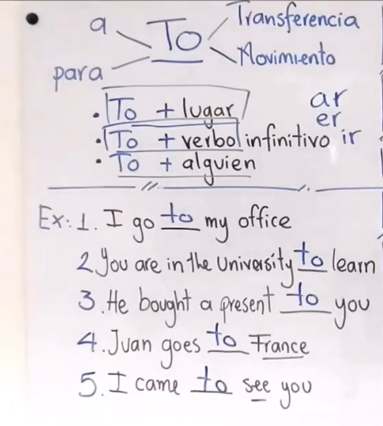 a To Transferencia
para Movimiento
• To + lugar ar
• To + verbo infinitivo ir er
• To + alguien
Ex: 1. I go to my office
2. You are in the University to learn
3. He bought a present to you
4. Juan goes to France
5. I came to see you